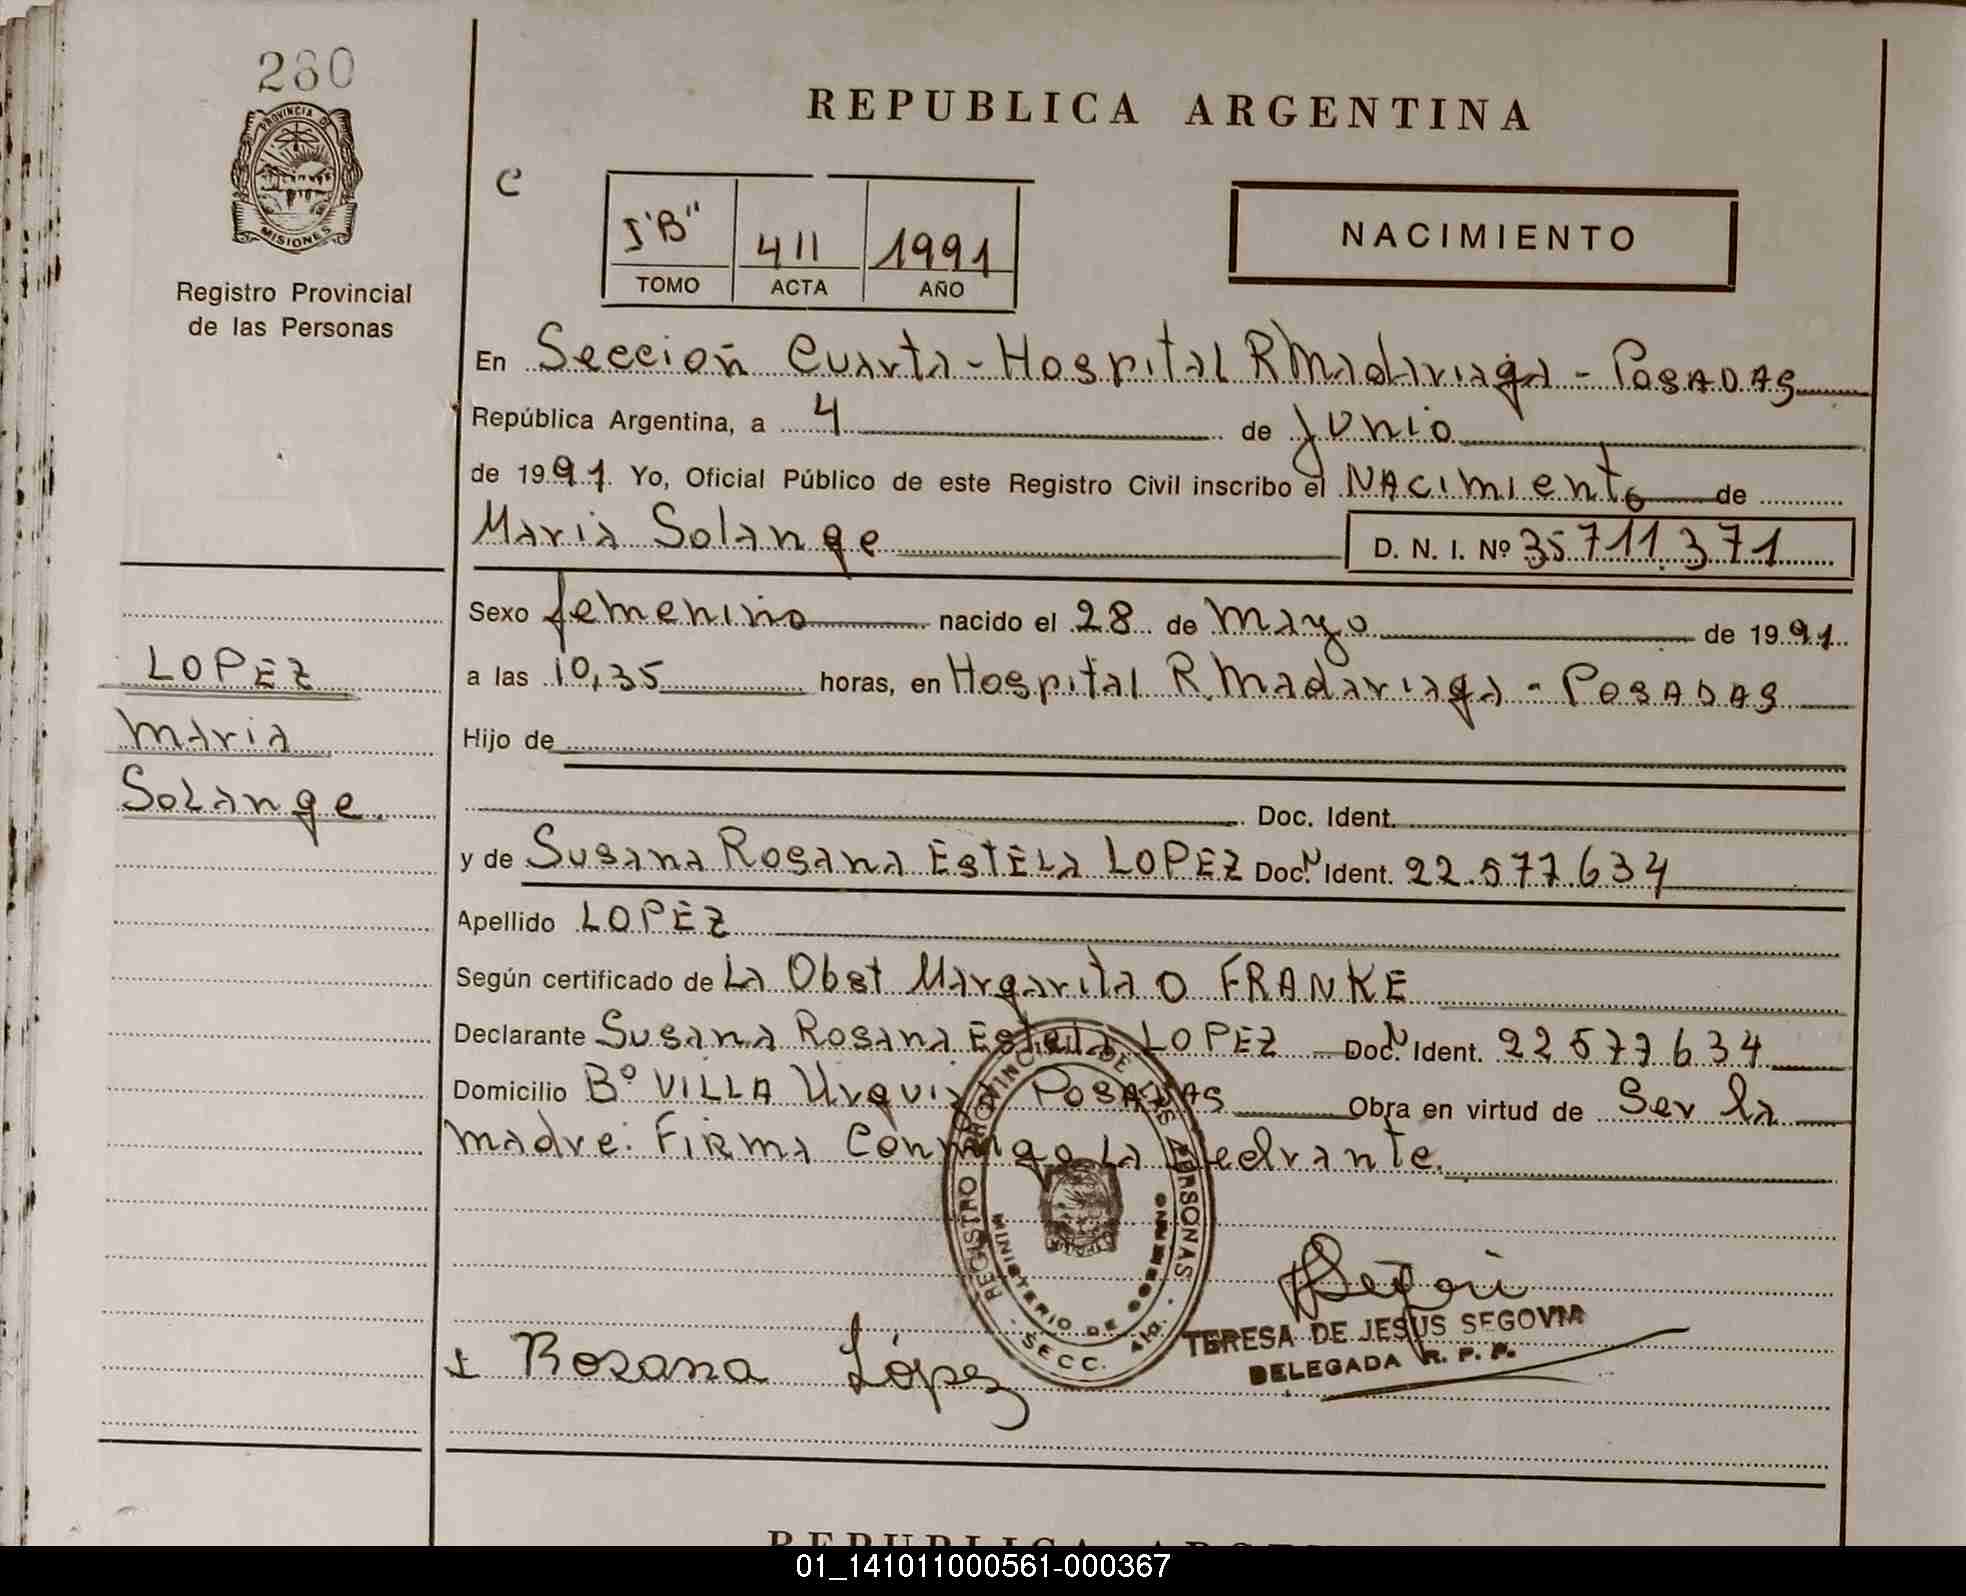 280
PROVINCIA DE
MISIONES
Registro Provincial
de las Personas
REPUBLICA ARGENTINA
C
"B" 411 1991
TOMO ACTA AÑO
NACIMIENTO
En Sección Cuarta - Hospital R Madariaga - POSADAS
República Argentina, a 4 de Junio
de 1991. Yo, Oficial Público de este Registro Civil inscribo el NACIMIENTO de
Maria Solange D. N. I. Nº 35.711.371
LOPEZ
Maria
Solange
Sexo femenino nacido el 28 de Mayo de 1991
a las 10,35 horas, en Hospital R. Madariaga - POSADAS
Hijo de
Doc. Ident.
y de Susana Rosana EstELa LOPEZ Doc. N Ident. 22.577.634
Apellido LOPEZ
Según certificado de La Obst Margarita O FRANKE
Declarante Susana Rosana Estela LOPEZ Doc. N Ident. 22577634
Domicilio Bº VILLA Urquiza POSADAS Obra en virtud de Ser la
madre. Firma Conmigo La
REGISTRO PROVINCIAL DE LAS PERSONAS
MINISTERIO DE GOBIERNO
SECC. 4ta.
TERESA DE JESUS SEGOVIA
DELEGADA R. P. P.
Rosana López
REPUBLICA
01_141011000561-000367